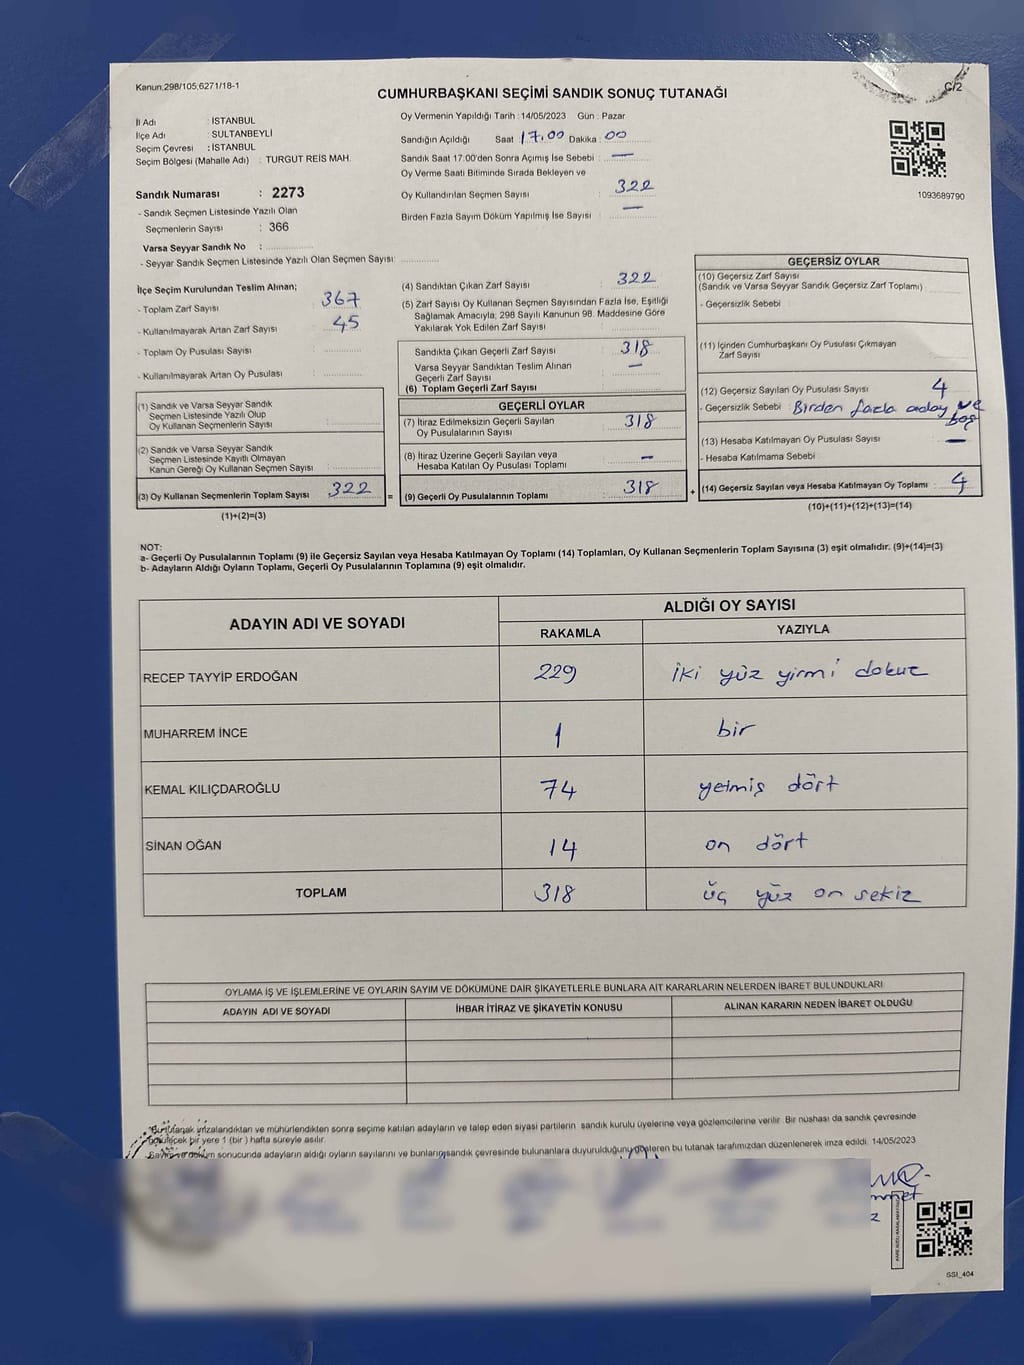 Kanun,298/105,6271/18-1
C/2
CUMHURBAŞKANI SEÇİMİ SANDIK SONUÇ TUTANAĞI
İl Adı : İSTANBUL
İlçe Adı : SULTANBEYLİ
Seçim Çevresi : İSTANBUL
Seçim Bölgesi (Mahalle Adı) : TURGUT REİS MAH.
Sandık Numarası : 2273
- Sandık Seçmen Listesinde Yazılı Olan
Seçmenlerin Sayısı : 366
Varsa Seyyar Sandık No :
- Seyyar Sandık Seçmen Listesinde Yazılı Olan Seçmen Sayısı:
Oy Vermenin Yapıldığı Tarih : 14/05/2023 Gün : Pazar
Sandığın Açıldığı Saat 17.00 Dakika : 00
Sandık Saat 17:00'den Sonra Açımış İse Sebebi : —
Oy Verme Saati Bitiminde Sırada Bekleyen ve
Oy Kullandırılan Seçmen Sayısı : 322
Birden Fazla Sayım Döküm Yapılmış İse Sayısı : —
1093689790
İlçe Seçim Kurulundan Teslim Alınan;
- Toplam Zarf Sayısı : 367
- Kullanılmayarak Artan Zarf Sayısı : 45
- Toplam Oy Pusulası Sayısı :
- Kullanılmayarak Artan Oy Pusulası :
(1) Sandık ve Varsa Seyyar Sandık
Seçmen Listesinde Yazılı Olup
Oy Kullanan Seçmenlerin Sayısı :
(2) Sandık ve Varsa Seyyar Sandık
Seçmen Listesinde Kayıtlı Olmayan
Kanun Gereği Oy Kullanan Seçmen Sayısı :
(3) Oy Kullanan Seçmenlerin Toplam Sayısı : 322 =
(1)+(2)=(3)
(4) Sandıktan Çıkan Zarf Sayısı : 322
(5) Zarf Sayısı Oy Kullanan Seçmen Sayısından Fazla İse, Eşitliği
Sağlamak Amacıyla, 298 Sayılı Kanunun 98. Maddesine Göre
Yakılarak Yok Edilen Zarf Sayısı :
Sandıkta Çıkan Geçerli Zarf Sayısı : 318
Varsa Seyyar Sandıktan Teslim Alınan
Geçerli Zarf Sayısı : —
(6) Toplam Geçerli Zarf Sayısı :
GEÇERLİ OYLAR
(7) İtiraz Edilmeksizin Geçerli Sayılan
Oy Pusulalarının Sayısı : 318
(8) İtiraz Üzerine Geçerli Sayılan veya
Hesaba Katılan Oy Pusulası Toplamı : —
(9) Geçerli Oy Pusulalarının Toplamı : 318 +
GEÇERSİZ OYLAR
(10) Geçersiz Zarf Sayısı
(Sandık ve Varsa Seyyar Sandık Geçersiz Zarf Toplamı) :
- Geçersizlik Sebebi :
(11) İçinden Cumhurbaşkanı Oy Pusulası Çıkmayan
Zarf Sayısı :
(12) Geçersiz Sayılan Oy Pusulası Sayısı : 4
- Geçersizlik Sebebi : Birden fazla aday ve
boş
(13) Hesaba Katılmayan Oy Pusulası Sayısı : —
- Hesaba Katılmama Sebebi :
(14) Geçersiz Sayılan veya Hesaba Katılmayan Oy Toplamı : 4
(10)+(11)+(12)+(13)=(14)
NOT:
a- Geçerli Oy Pusulalarının Toplamı (9) ile Geçersiz Sayılan veya Hesaba Katılmayan Oy Toplamı (14) Toplamları, Oy Kullanan Seçmenlerin Toplam Sayısına (3) eşit olmalıdır. (9)+(14)=(3)
b- Adayların Aldığı Oyların Toplamı, Geçerli Oy Pusulalarının Toplamına (9) eşit olmalıdır.
ADAYIN ADI VE SOYADI ALDIĞI OY SAYISI
RAKAMLA YAZIYLA
RECEP TAYYİP ERDOĞAN 229 iki yüz yirmi dokuz
MUHARREM İNCE 1 bir
KEMAL KILIÇDAROĞLU 74 yetmiş dört
SİNAN OĞAN 14 on dört
TOPLAM 318 üç yüz on sekiz
OYLAMA İŞ VE İŞLEMLERİNE VE OYLARIN SAYIM VE DÖKÜMÜNE DAİR ŞİKAYETLERLE BUNLARA AİT KARARLARIN NELERDEN İBARET BULUNDUKLARI
ADAYIN ADI VE SOYADI İHBAR İTİRAZ VE ŞİKAYETİN KONUSU ALINAN KARARIN NEDEN İBARET OLDUĞU
Bu tutanak imzalandıktan ve mühürlendikten sonra seçime katılan adayların ve talep eden siyasi partilerin sandık kurulu üyelerine veya gözlemcilerine verilir. Bir nüshası da sandık çevresinde
görülecek bir yere 1 (bir) hafta süreyle asılır.
Sayım ve döküm sonucunda adayların aldığı oyların sayılarını ve bunların sandık çevresinde bulunanlara duyurulduğunu gösteren bu tutanak tarafımızdan düzenlenerek imza edildi. 14/05/2023
SSI_404